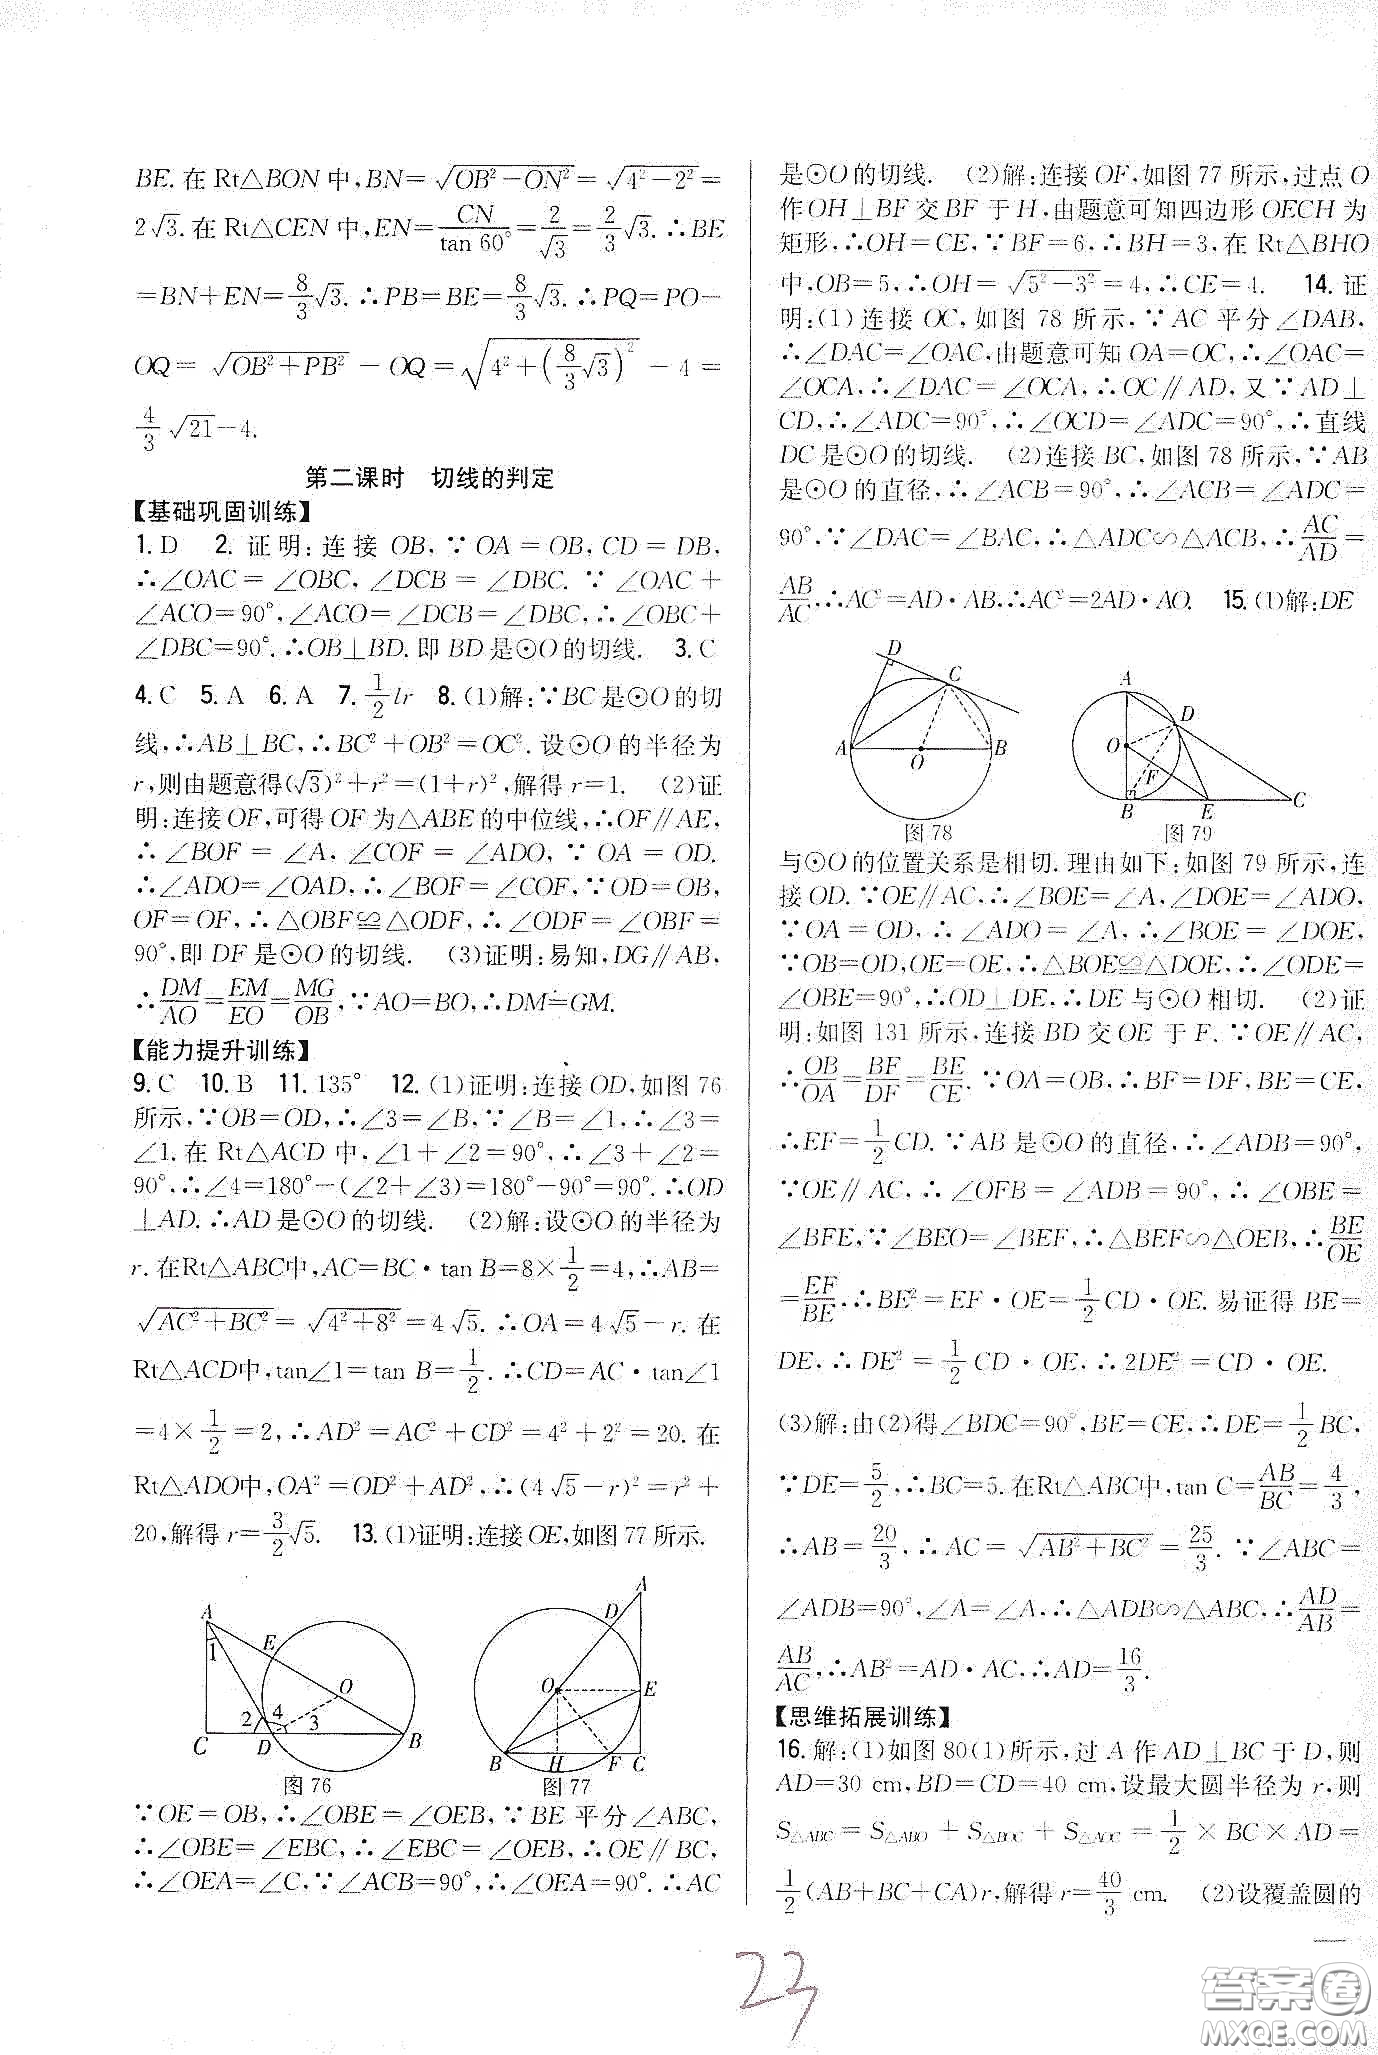 BE. 在 Rt△BON 中, BN=√(OB²-ON²)=√(4²-2²)=
2√3. 在 Rt△CEN 中, EN=CN/tan 60°=2/√3=2/3√3. ∴BE
=BN+EN=8/3√3. ∴PB=BE=8/3√3. ∴PQ=PO-
OQ=√(OB²+PB²)-OQ=√(4²+(8/3√3)²)-4=
4/3√21-4.
第二课时 切线的判定
【基础巩固训练】
1. D 2. 证明:连接 OB, ∵OA=OB, CD=DB,
∴∠OAC=∠OBC, ∠DCB=∠DBC. ∵∠OAC+
∠ACO=90°, ∠ACO=∠DCB=∠DBC, ∴∠OBC+
∠DBC=90°. ∴OB⊥BD. 即 BD 是⊙O 的切线. 3. C
4. C 5. A 6. A 7. 1/2lr 8. (1)解:∵BC 是⊙O 的切
线, ∴AB⊥BC, ∴BC²+OB²=OC². 设⊙O 的半径为
r, 则由题意得(√3)²+r²=(1+r)², 解得 r=1. (2)证
明:连接 OF, 可得 OF 为△ABE 的中位线, ∴OF∥AE,
∴∠BOF=∠A, ∠COF=∠ADO, ∵OA=OD.
∴∠ADO=∠OAD, ∴∠BOF=∠COF, ∵OD=OB,
OF=OF, ∴△OBF≌△ODF, ∴∠ODF=∠OBF=
90°, 即 DF 是⊙O 的切线. (3)证明:易知, DG∥AB,
∴DM/AO=EM/EO=MG/OB, ∵AO=BO, ∴DM=GM.
【能力提升训练】
9. C 10. B 11. 135° 12. (1)证明:连接 OD, 如图 76
所示, ∵OB=OD, ∴∠3=∠B, ∵∠B=∠1, ∴∠3=
∠1. 在 Rt△ACD 中, ∠1+∠2=90°, ∴∠3+∠2=
90°, ∴∠4=180°-(∠2+∠3)=180°-90°=90°. ∴OD
⊥AD. ∴AD 是⊙O 的切线. (2)解:设⊙O 的半径为
r. 在Rt△ABC中, AC=BC·tan B=8×1/2=4, ∴AB=
√(AC²+BC²)=√(4²+8²)=4√5. ∴OA=4√5-r. 在
Rt△ACD中, tan∠1=tan B=1/2. ∴CD=AC·tan∠1
=4×1/2=2, ∴AD²=AC²+CD²=4²+2²=20. 在
Rt△ADO中, OA²=OD²+AD², ∴(4√5-r)²=r²+
20, 解得 r=3/2√5. 13. (1)证明:连接 OE, 如图 77 所示.
A 1 E O 2 4 3 C D B
图 76
A D O E B H F C
图 77
∵OE=OB, ∴∠OBE=∠OEB, ∵BE 平分∠ABC,
∴∠OBE=∠EBC, ∴∠EBC=∠OEB, ∴OE∥BC,
∴∠OEA=∠C, ∵∠ACB=90°, ∴∠OEA=90°. ∴AC
是⊙O 的切线. (2)解:连接 OF, 如图 77 所示, 过点 O
作 OH⊥BF 交 BF 于 H, 由题意可知四边形 OECH 为
矩形, ∴OH=CE, ∵BF=6, ∴BH=3, 在 Rt△BHO
中, OB=5, ∴OH=√(5²-3²)=4, ∴CE=4. 14. 证
明:(1)连接 OC, 如图 78 所示, ∵AC 平分∠DAB,
∴∠DAC=∠OAC, 由题意可知 OA=OC, ∴∠OAC=
∠OCA, ∴∠DAC=∠OCA, ∴OC∥AD, 又∵AD⊥
CD, ∴∠ADC=90°, ∴∠OCD=∠ADC=90°, ∴直线
DC 是⊙O 的切线. (2)连接 BC, 如图 78 所示, ∵AB
是⊙O 的直径, ∴∠ACB=90°, ∴∠ACB=∠ADC=
90°, ∵∠DAC=∠BAC, ∴△ADC∽△ACB, ∴AC/AD=
AB/AC, ∴AC²=AD·AB. ∴AC²=2AD·AO. 15. (1)解:DE
D C A O B
图 78
A D O F B E C
图 79
与⊙O 的位置关系是相切. 理由如下:如图 79 所示, 连
接 OD. ∵OE∥AC, ∴∠BOE=∠A, ∠DOE=∠ADO,
∵OA=OD, ∴∠ADO=∠A, ∴∠BOE=∠DOE,
∵OB=OD, OE=OE, ∴△BOE≌△DOE, ∴∠ODE=
∠OBE=90°, ∴OD⊥DE, ∴DE 与⊙O 相切. (2)证
明:如图 131 所示, 连接 BD 交 OE 于 F. ∵OE∥AC,
∴OB/OA=BF/DF=BE/CE. ∵OA=OB, ∴BF=DF, BE=CE,
∴EF=1/2CD. ∵AB 是⊙O 的直径, ∴∠ADB=90°,
∵OE∥AC, ∴∠OFB=∠ADB=90°, ∴∠OBE=
∠BFE, ∵∠BEO=∠BEF, ∴△BEF∽△OEB, ∴BE/OE
=EF/BE, ∴BE²=EF·OE=1/2CD·OE. 易证得 BE=
DE, ∴DE²=1/2CD·OE, ∴2DE²=CD·OE.
(3)解:由(2)得∠BDC=90°, BE=CE, ∴DE=1/2BC,
∵DE=5/2, ∴BC=5. 在Rt△ABC中, tan C=AB/BC=4/3,
∴AB=20/3, ∴AC=√(AB²+BC²)=25/3. ∵∠ABC=
∠ADB=90°, ∠A=∠A, ∴△ADB∽△ABC, ∴AD/AB=
AB/AC, ∴AB²=AD·AC, ∴AD=16/3.
【思维拓展训练】
16. 解:(1)如图 80(1)所示, 过 A 作 AD⊥BC 于 D, 则
AD=30 cm, BD=CD=40 cm, 设最大圆半径为 r, 则
S△ABC=S△ABO+S△BOC+S△AOC=1/2×BC×AD=
1/2(AB+BC+CA)r, 解得 r=40/3 cm. (2)设覆盖圆的
23
答案圈
MXQE.COM